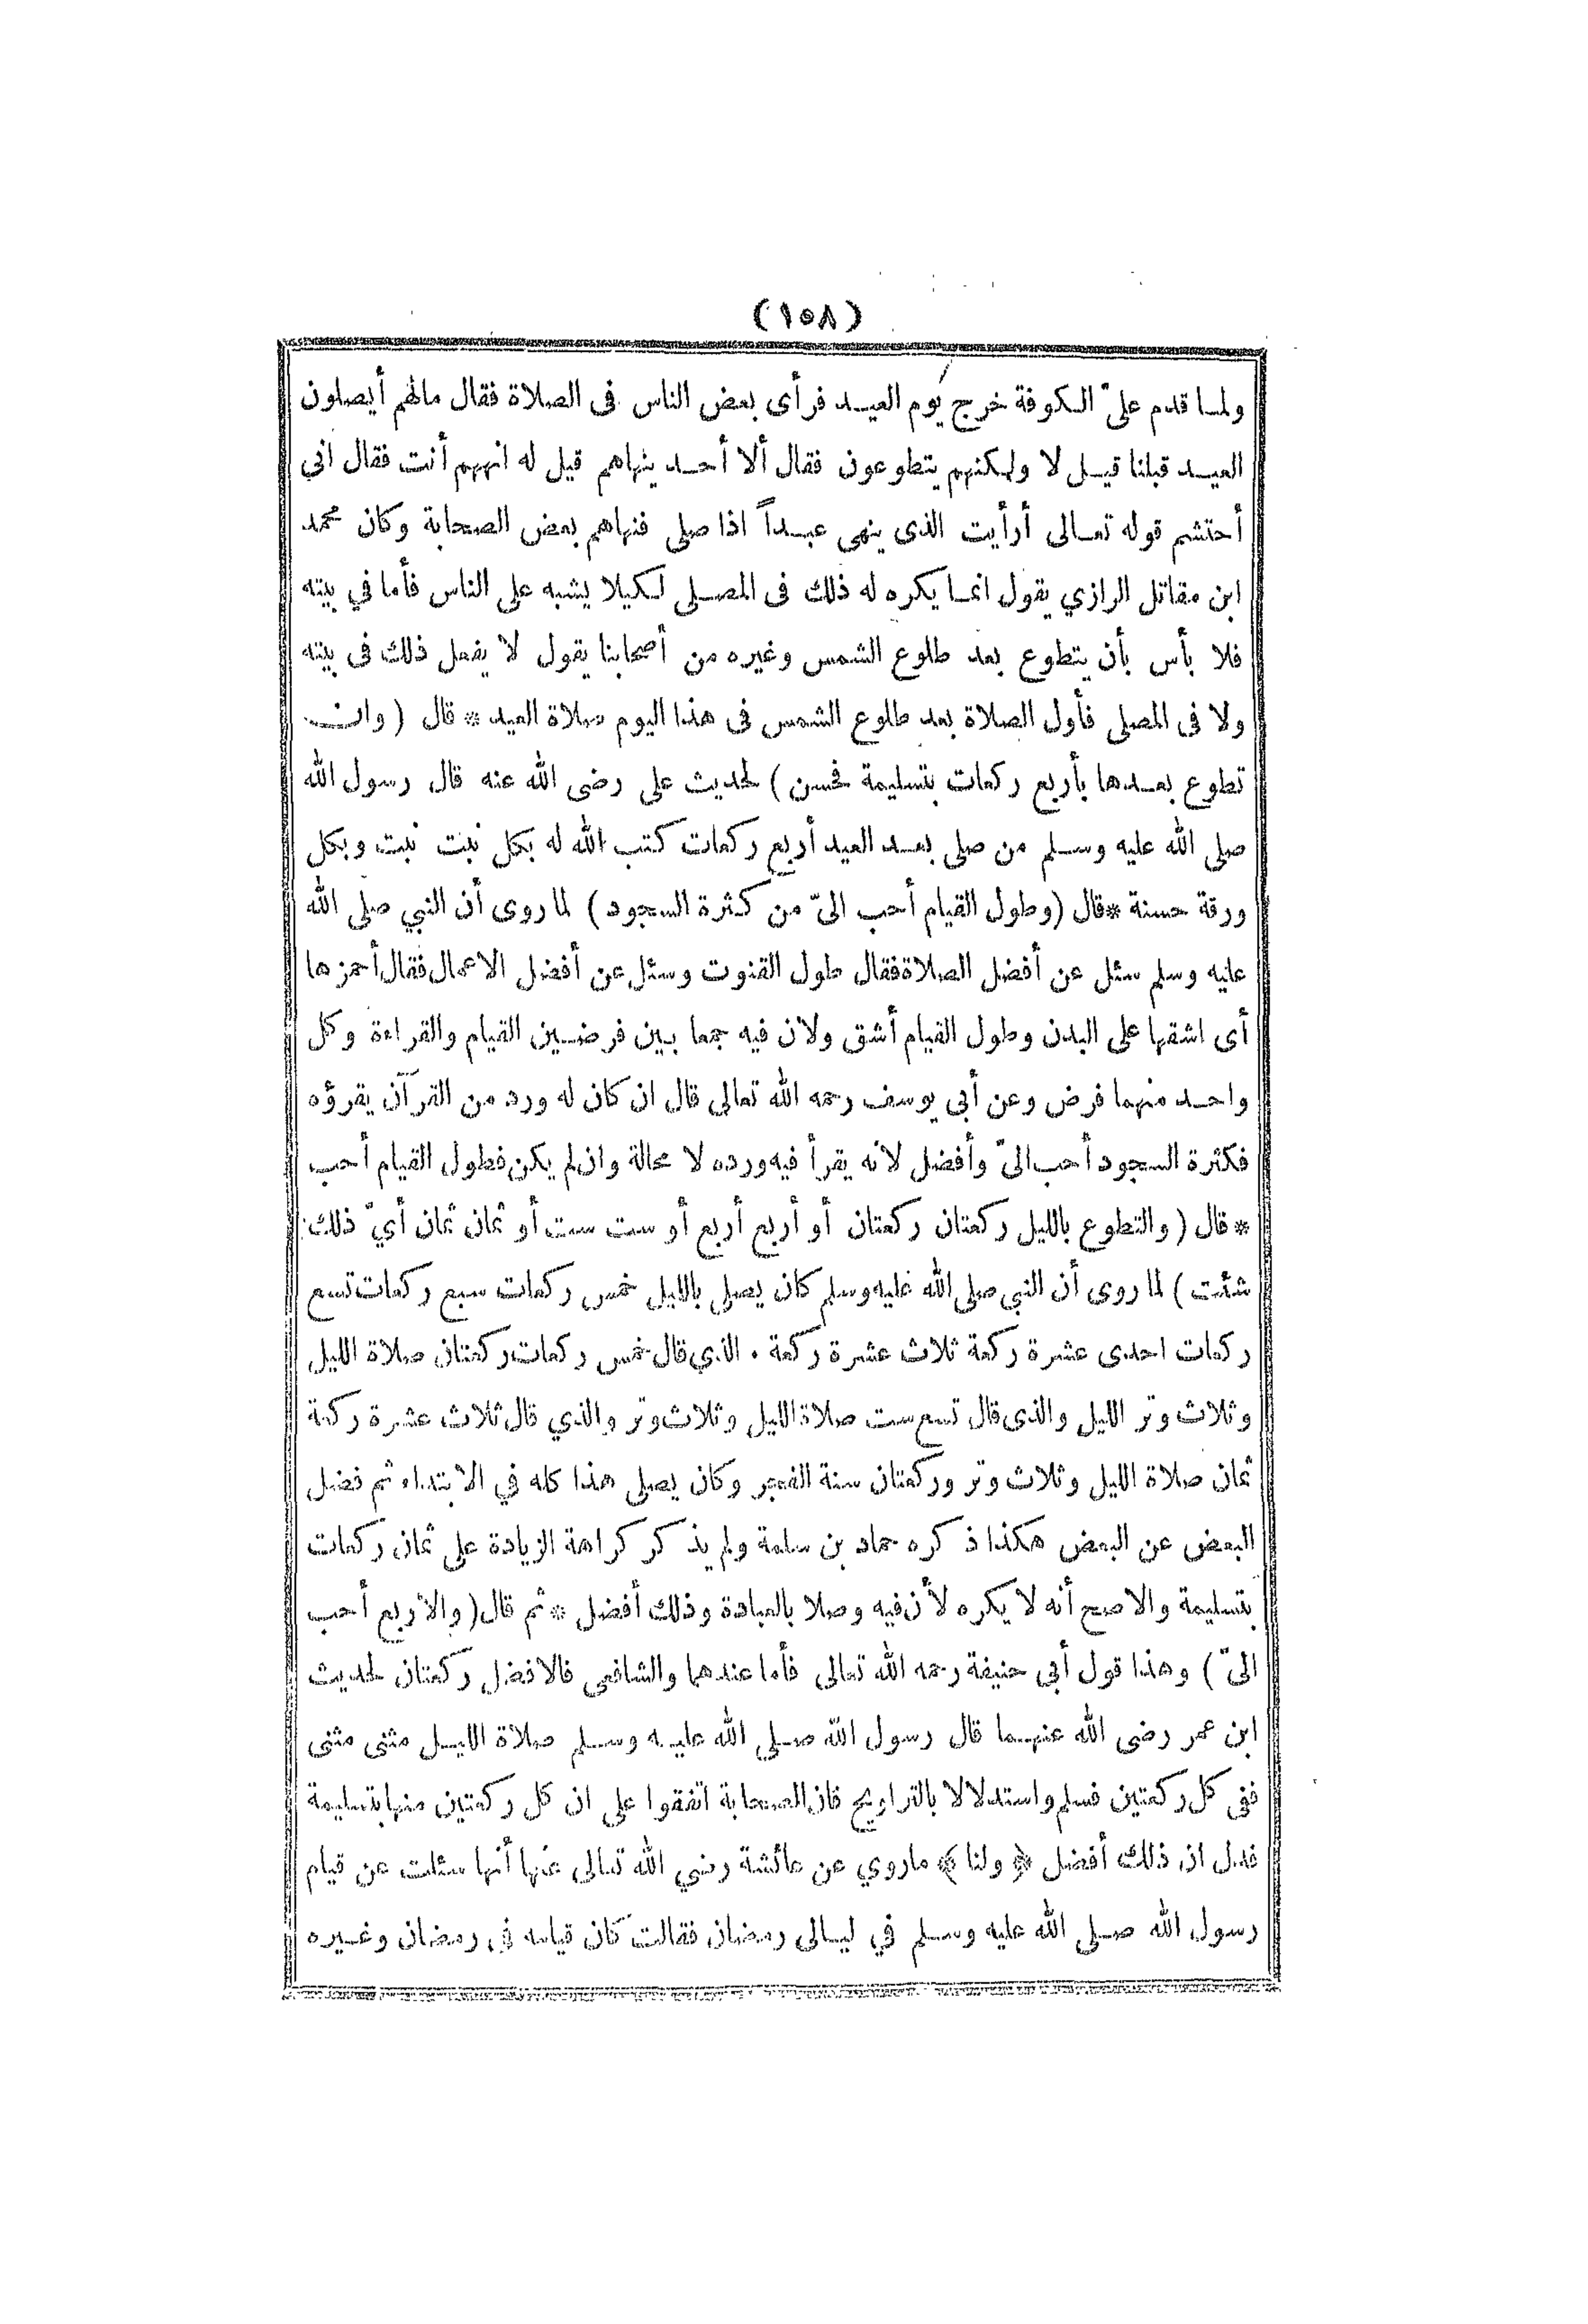 (١٥٨)
ولما قدم علىّ الكوفة خرج يوم العيد فرأى بعض الناس فى الصلاة فقال مالهم أيصلون
العيد قبلنا قيل لا ولكنهم يتطوعون فقال ألا أحد ينهاهم قيل له انههم أنت فقال انى
أحتشم قوله تعالى أرأيت الذى ينهى عبداً اذا صلى فنهاهم بعض الصحابة وكان محمد
ابن مقاتل الرازي يقول انما يكره له ذلك فى المصلى لكيلا يشبه على الناس فأما في بيته
فلا بأس بأن يتطوع بعد طلوع الشمس وغيره من أصحابنا يقول لا يفعل ذلك فى بيته
ولا فى المصلى فأول الصلاة بعد طلوع الشمس فى هذا اليوم صلاة العيد * قال (وان
تطوع بعدها بأربع ركعات بتسليمة فحسن) لحديث على رضى الله عنه قال رسول الله
صلى الله عليه وسلم من صلى بعد العيد أربع ركعات كتب الله له بكل نبت نبت وبكل
ورقة حسنة * قال (وطول القيام أحب الىّ من كثرة السجود) لما روى أن النبي صلى الله
عليه وسلم سئل عن أفضل الصلاة فقال طول القنوت وسئل عن أفضل الاعمال فقال أحمزها
أى اشقها على البدن وطول القيام أشق ولان فيه جمعا بين فرضين القيام والقراءة وكل
واحد منهما فرض وعن أبى يوسف رحمه الله تعالى قال ان كان له ورد من القرآن يقرؤه
فكثرة السجود أحب الىّ وأفضل لانه يقرأ فيه ورده لا محالة وان لم يكن فطول القيام أحب
* قال (والتطوع بالليل ركعتان ركعتان أو أربع أربع أو ست ست أو ثمان ثمان أيّ ذلك
شئت) لما روى أن النبي صلى الله عليه وسلم كان يصلى بالليل خمس ركعات سبع ركعات تسع
ركعات احدى عشرة ركعة ثلاث عشرة ركعة . الذي قال خمس ركعات ركعتان صلاة الليل
وثلاث وتر الليل والذى قال تسع ست صلاة الليل وثلاث وتر والذي قال ثلاث عشرة ركعة
ثمان صلاة الليل وثلاث وتر وركعتان سنة الفجر وكان يصلى هذا كله في الابتداء ثم فضل
البعض عن البعض هكذا ذكره حماد بن سلمة ولم يذكر كراهة الزيادة على ثمان ركعات
بتسليمة والاصح أنه لا يكره لأن فيه وصلا بالعبادة وذلك أفضل * ثم قال (والأربع أحب
الىّ) وهذا قول أبى حنيفة رحمه الله تعالى فأما عندهما والشافعى فالافضل ركعتان لحديث
ابن عمر رضى الله عنهما قال رسول الله صلي الله عليه وسلم صلاة الليل مثنى مثنى
ففى كل ركعتين فسلم واستدلالا بالتراويح فان الصحابة اتفقوا على ان كل ركعتين منها بتسليمة
فدل ان ذلك أفضل ﴿ ولنا ﴾ ماروي عن عائشة رضي الله تعالى عنها أنها سئلت عن قيام
رسول الله صلى الله عليه وسلم في ليالى رمضان فقالت كان قيامه في رمضان وغيره